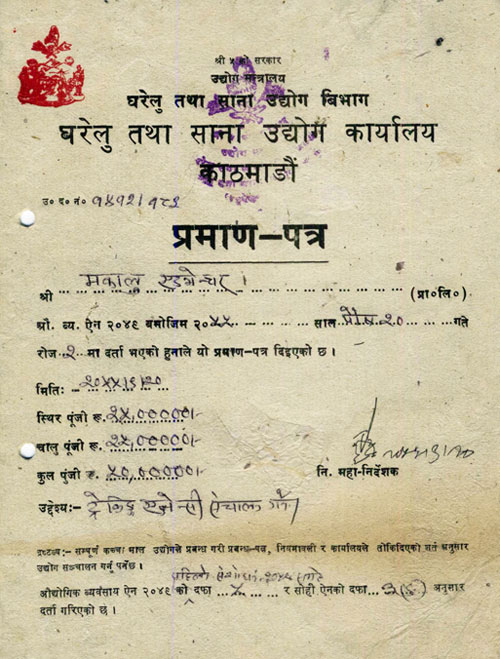 श्री ५ को सरकार
उद्योग मन्त्रालय
घरेलु तथा साना उद्योग बिभाग
घरेलु तथा साना उद्योग कार्यालय
काठमाडौं
उ० द० नं०
प्रमाण-पत्र
श्री मकालु (प्रा०लि०)
औ. ब्य. ऐन २०४९ बमोजिम २०५५ साल २० गते
रोज २ मा दर्ता भएको हुनाले यो प्रमाण-पत्र दिइएको छ ।
मितिः-
स्थिर पूंजी रु. २५,०००००।-
चालु पूंजी रु. २५,०००००।-
कुल पूंजी रु. ५०,०००००।-
नि. महा-निर्देशक
उद्देश्यः- ट्रेकिङ्ग एजेन्सी संचालन गर्ने
द्रष्टव्यः- सम्पूर्ण कच्चा माल उद्योगले प्रबन्ध गरी प्रबन्ध-पत्र, नियमावली र कार्यालयले तोकिदिएको शर्त अनुसार
उद्योग सञ्चालन गर्नु पर्नेछ ।
औद्योगिक ब्यवसाय ऐन २०४९ को दफा र सोही ऐनको दफा अनुसार
दर्ता गरिएको छ ।